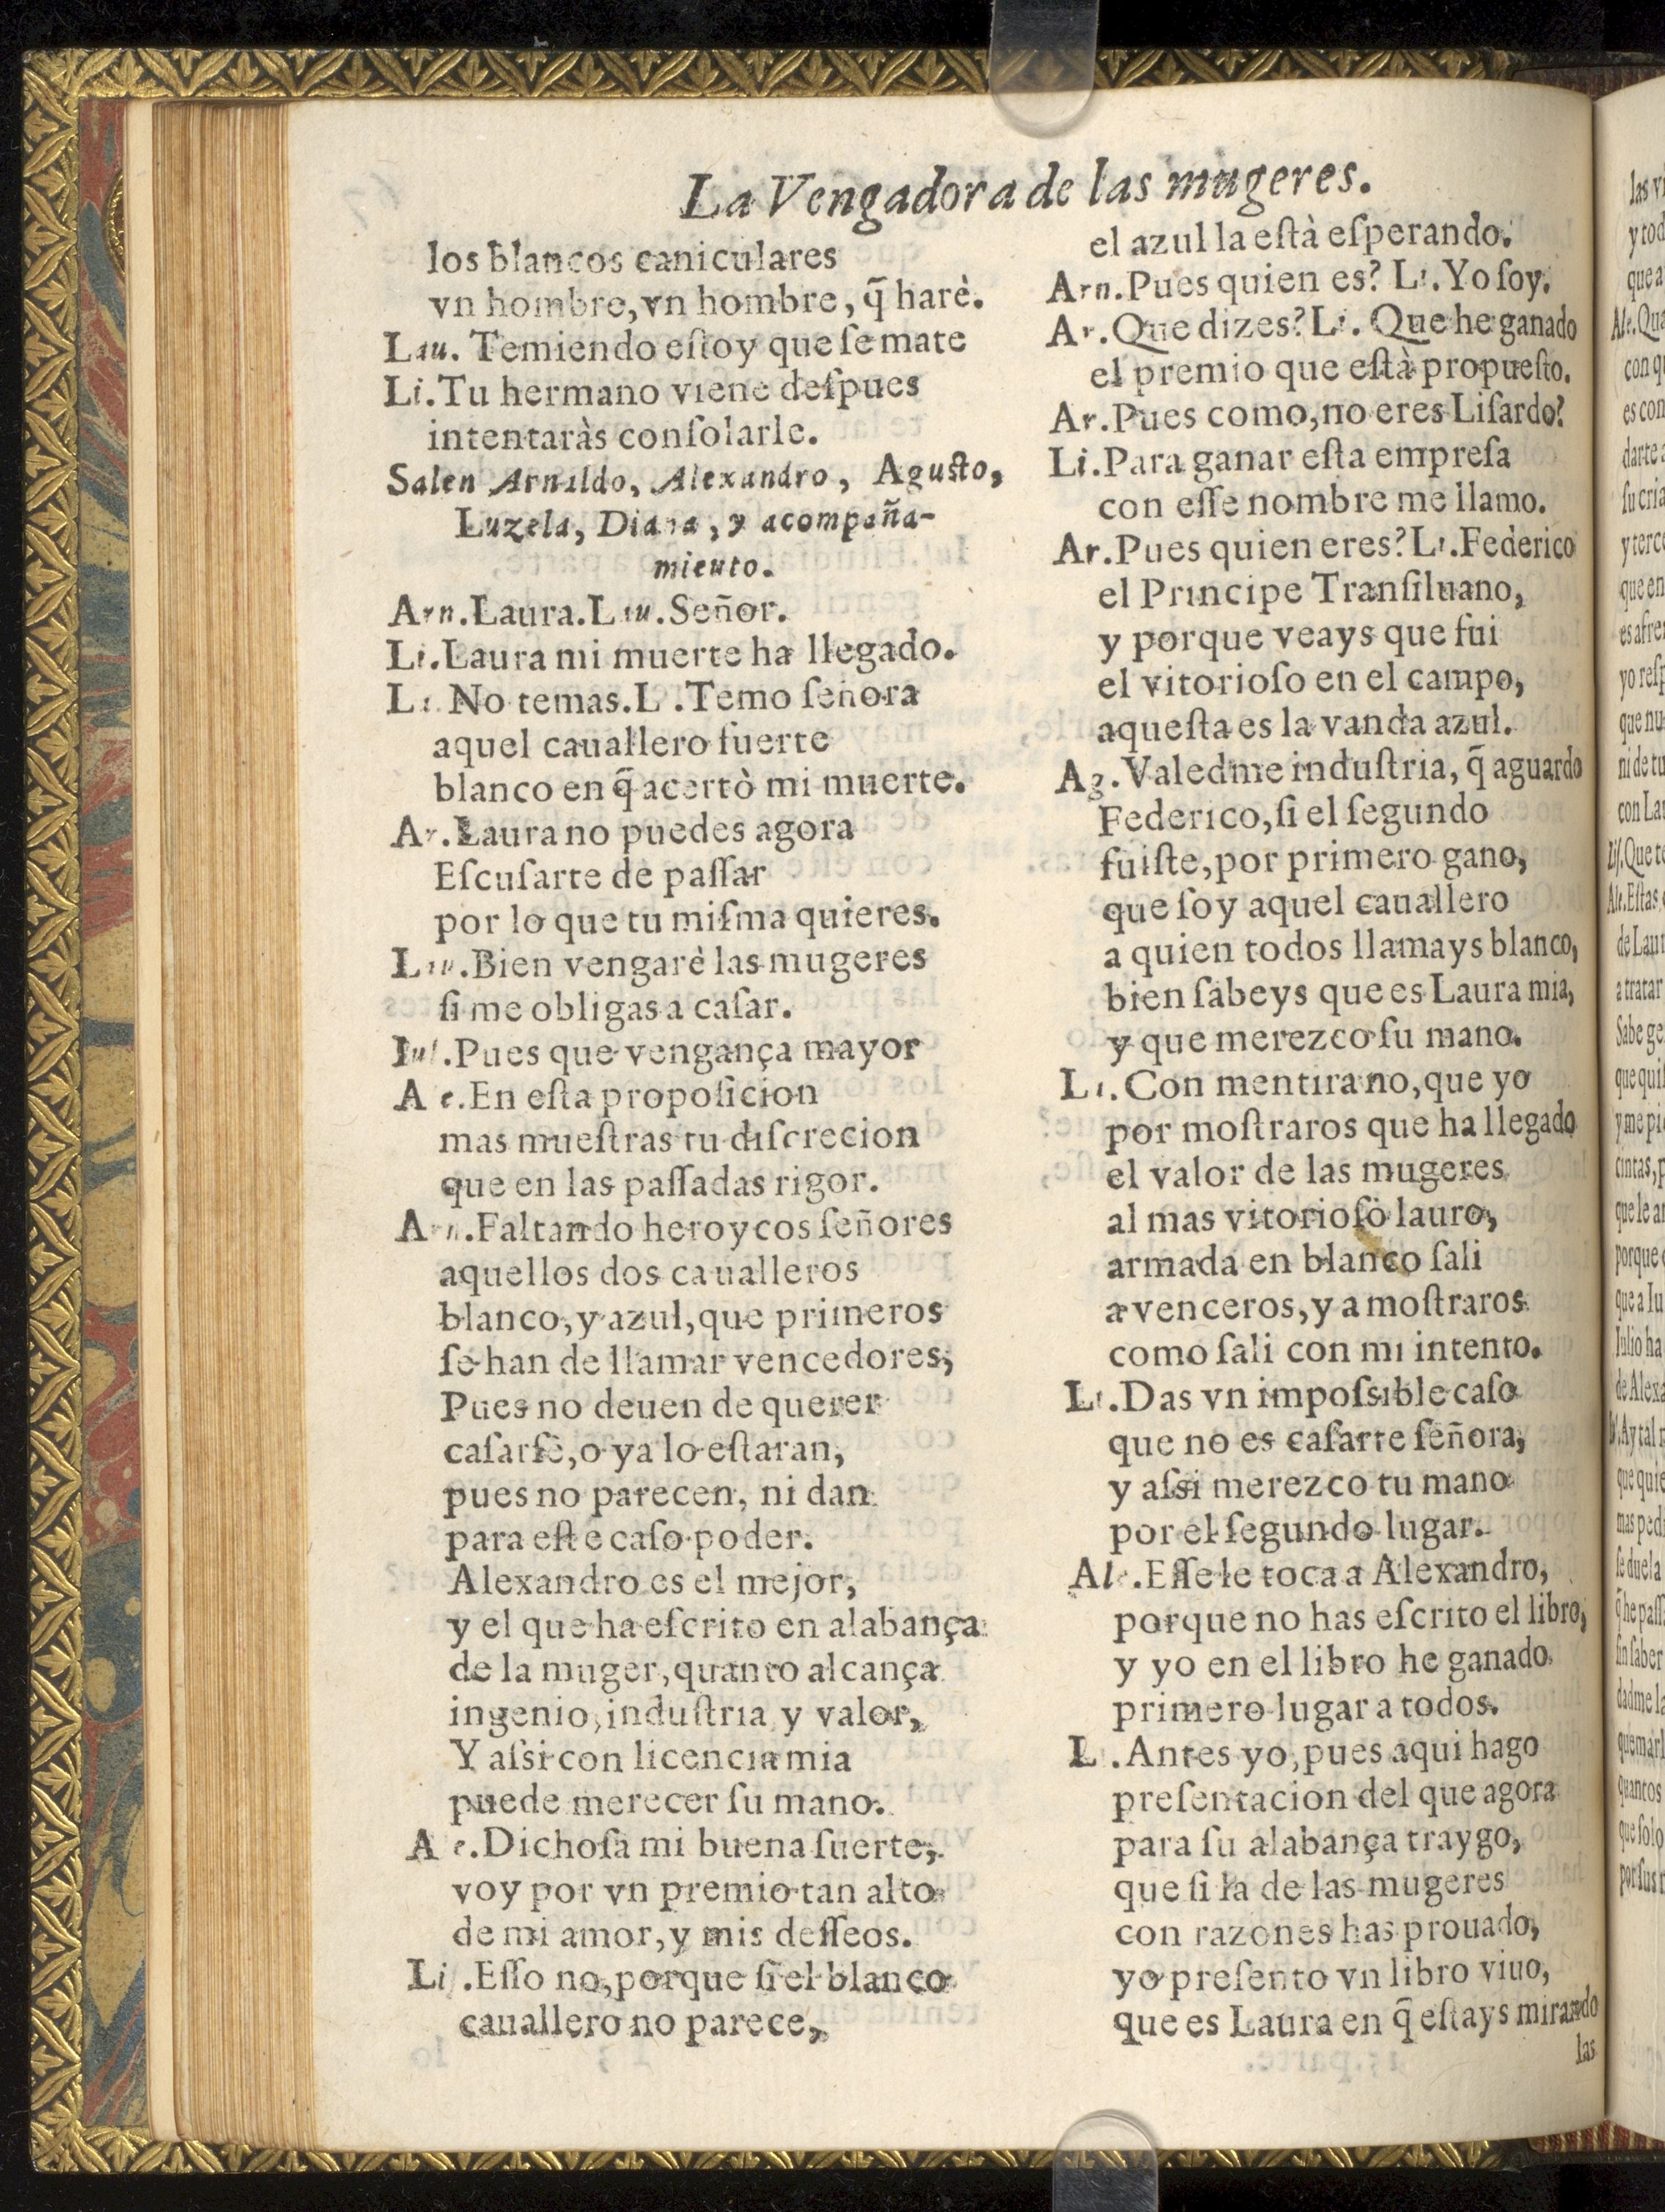 La Vengadora de las mugeres.
los blancos caniculares
vn hombre, vn hombre, q̃ harè.
Lau. Temiendo eſtoy que ſe mate
Li. Tu hermano viene deſpues
intentaràs conſolarle.
Salen Arnaldo, Alexandro, Aguſto,
Luzela, Diana, y acompaña-
miento.
Arn. Laura. Lau. Señor.
Li. Laura mi muerte ha llegado.
L. No temas. L. Temo ſeñora
aquel cauallero fuerte
blanco en q̃ acertò mi muerte.
Ar. Laura no puedes agora
Eſcuſarte de paſſar
por lo que tu miſma quieres.
Lau. Bien vengarè las mugeres
ſi me obligas a caſar.
Iul. Pues que vengança mayor
A e. En eſta propoſicion
mas mueſtras tu diſcrecion
que en las paſſadas rigor.
Arn. Faltando heroycos ſeñores
aquellos dos caualleros
blanco, y azul, que primeros
ſe han de llamar vencedores,
Pues no deuen de querer
caſarſe, o ya lo eſtaran,
pues no parecen, ni dan
para eſte caſo poder.
Alexandro es el mejor,
y el que ha eſcrito en alabança
de la muger, quanto alcança
ingenio, induſtria, y valor,
Y aſsi con licencia mia
puede merecer ſu mano.
A e. Dichoſa mi buena ſuerte,
voy por vn premio tan alto
de mi amor, y mis deſſeos.
Liſ. Eſſo no, porque ſi el blanco
cauallero no parece,
el azul la eſtà eſperando.
Arn. Pues quien es? Li. Yo ſoy.
Ar. Que dizes? Li. Que he ganado
el premio que eſtà propueſto.
Ar. Pues como, no eres Liſardo?
Li. Para ganar eſta empreſa
con eſſe nombre me llamo.
Ar. Pues quien eres? Li. Federico
el Principe Tranſiluano,
y porque veays que fui
el vitorioſo en el campo,
aqueſta es la vanda azul.
Ag. Valedme induſtria, q̃ aguardo
Federico, ſi el ſegundo
fuiſte, por primero gano,
que ſoy aquel cauallero
a quien todos llamays blanco,
bien ſabeys que es Laura mia,
y que merezco ſu mano.
L. Con mentira no, que yo
por moſtraros que ha llegado
el valor de las mugeres
al mas vitorioſo lauro,
armada en blanco ſali
a venceros, y a moſtraros
como ſali con mi intento.
Li. Das vn impoſsible caſo
que no es caſarte ſeñora,
y aſsi merezco tu mano
por el ſegundo lugar.
Al. Eſſe le toca a Alexandro,
porque no has eſcrito el libro,
y yo en el libro he ganado
primero lugar a todos.
L. Antes yo, pues aqui hago
preſentacion del que agora
para ſu alabança traygo,
que ſi la de las mugeres
con razones has prouado,
yo preſento vn libro viuo,
que es Laura en q̃ eſtays mirando
las